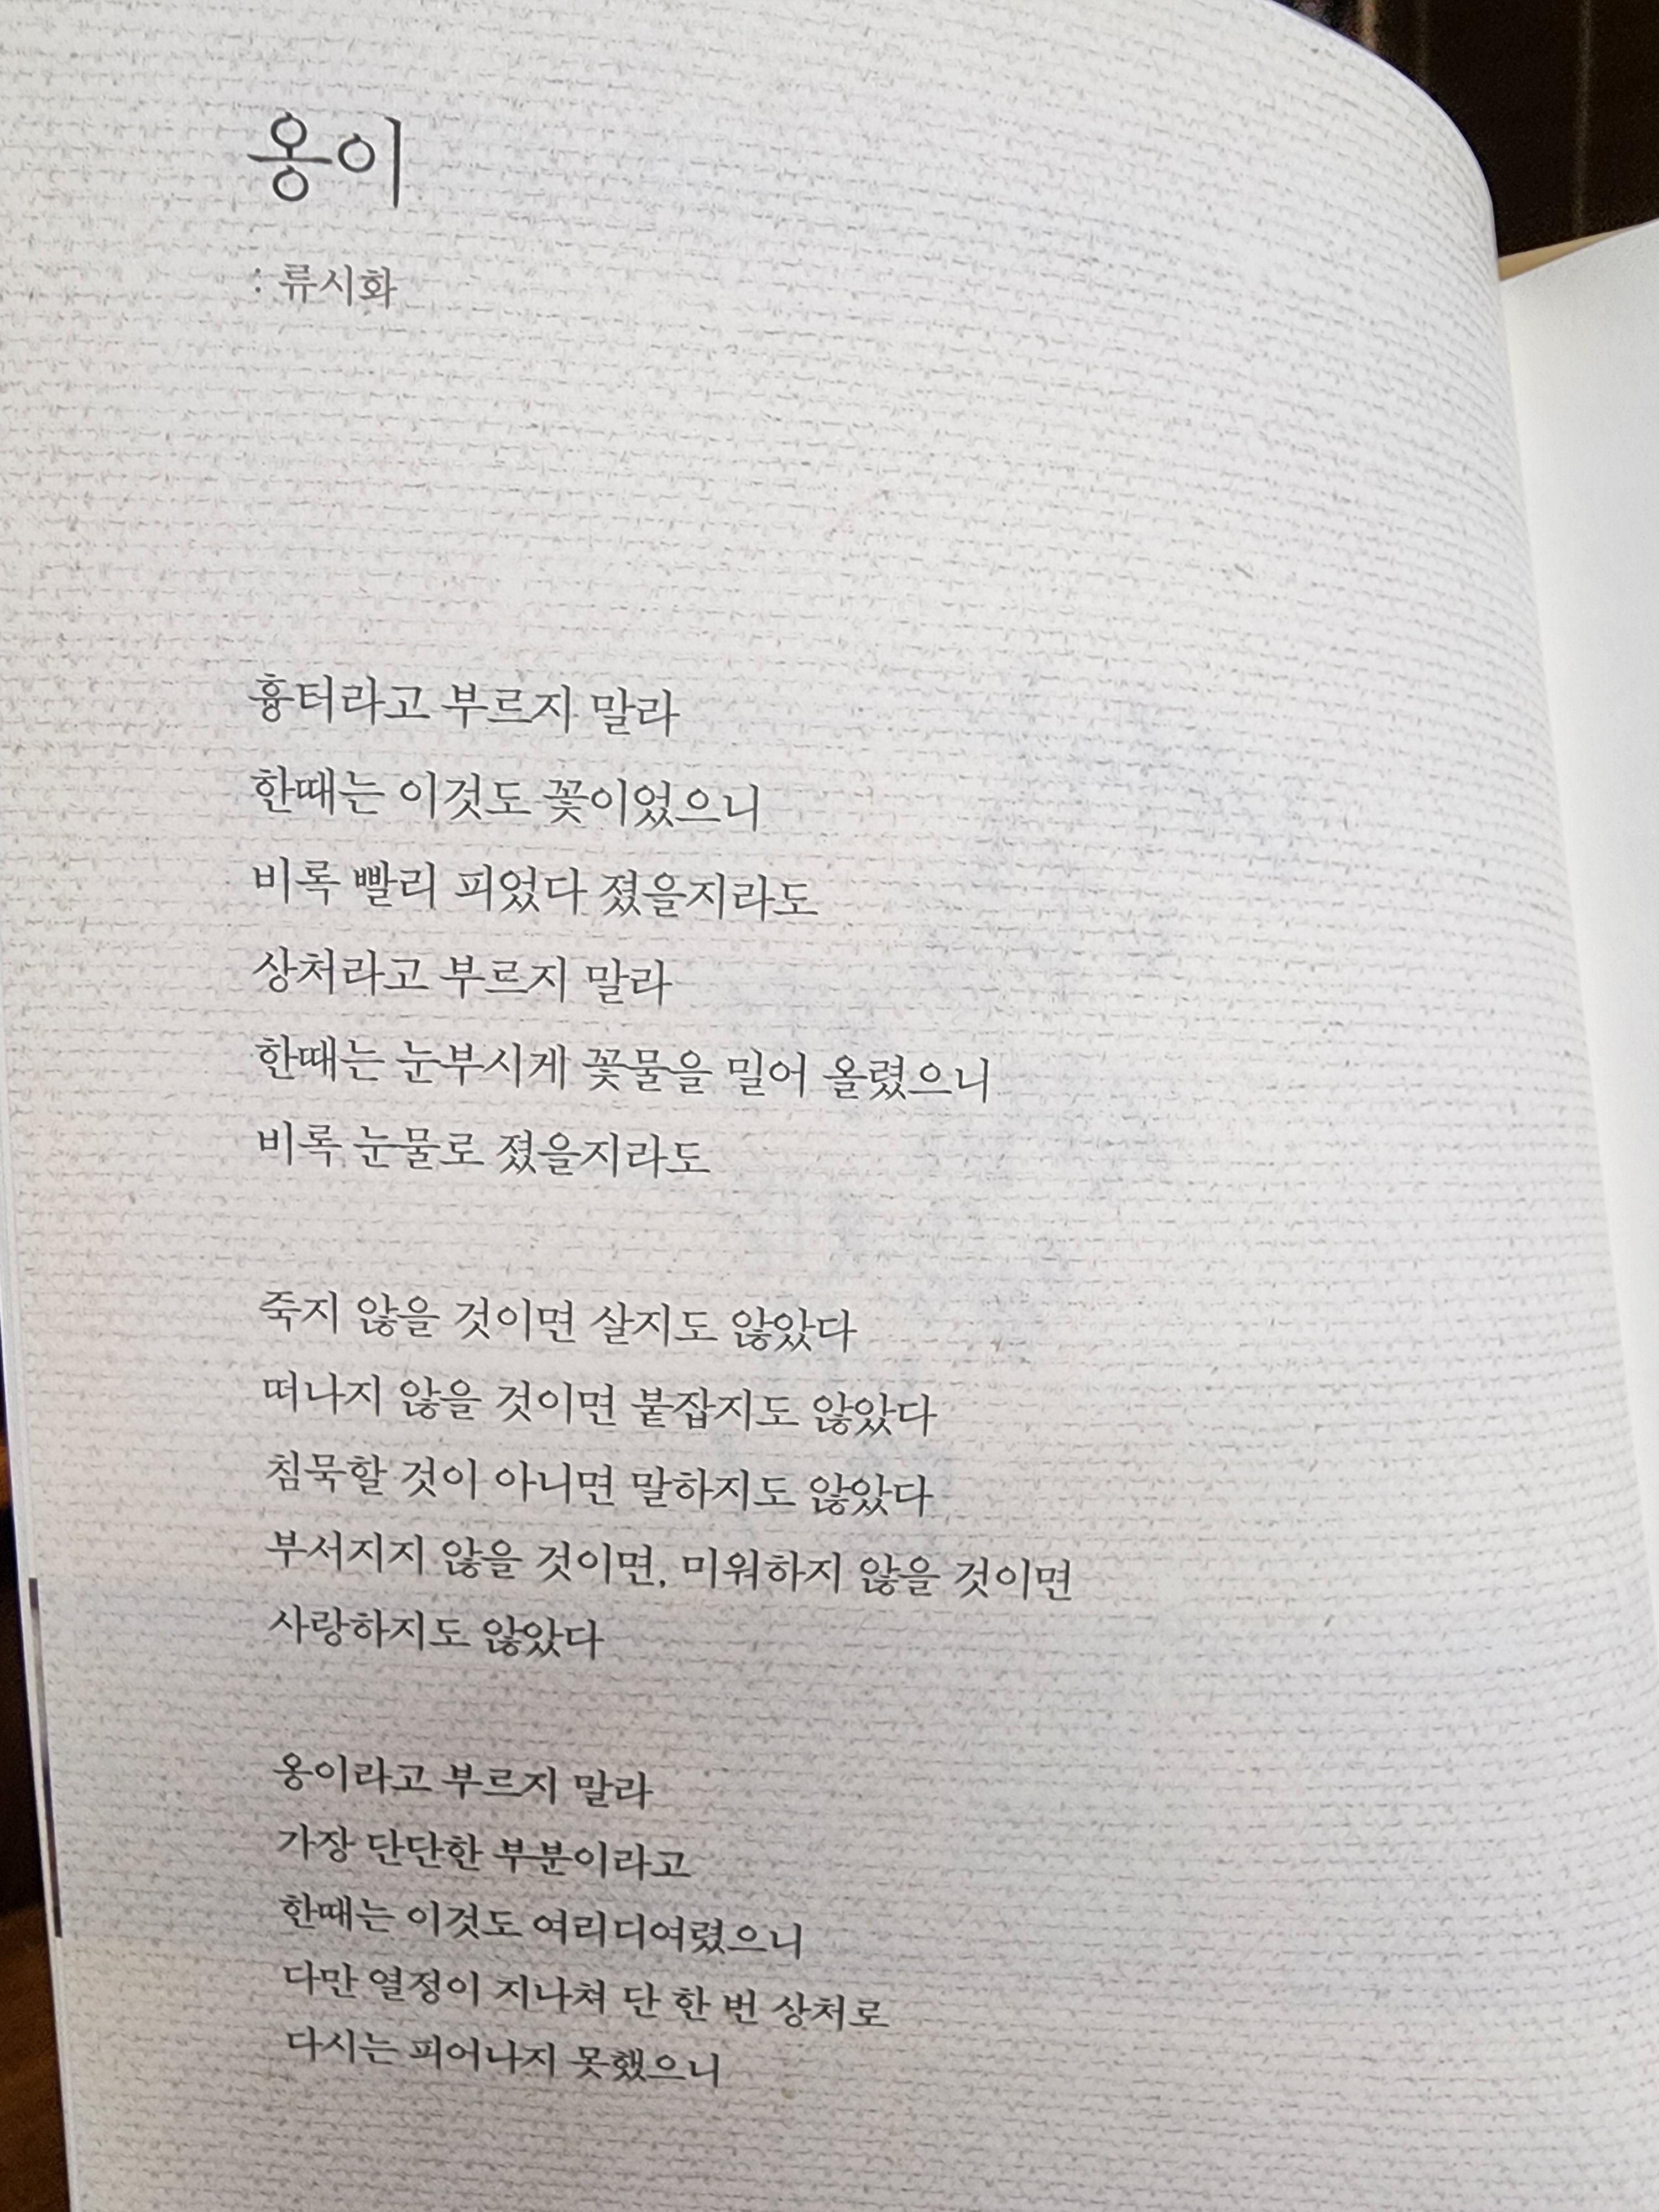 옹이
: 류시화
흉터라고 부르지 말라
한때는 이것도 꽃이었으니
비록 빨리 피었다 졌을지라도
상처라고 부르지 말라
한때는 눈부시게 꽃물을 밀어 올렸으니
비록 눈물로 졌을지라도
죽지 않을 것이면 살지도 않았다
떠나지 않을 것이면 붙잡지도 않았다
침묵할 것이 아니면 말하지도 않았다
부서지지 않을 것이면, 미워하지 않을 것이면
사랑하지도 않았다
옹이라고 부르지 말라
가장 단단한 부분이라고
한때는 이것도 여리디여렸으니
다만 열정이 지나쳐 단 한 번 상처로
다시는 피어나지 못했으니